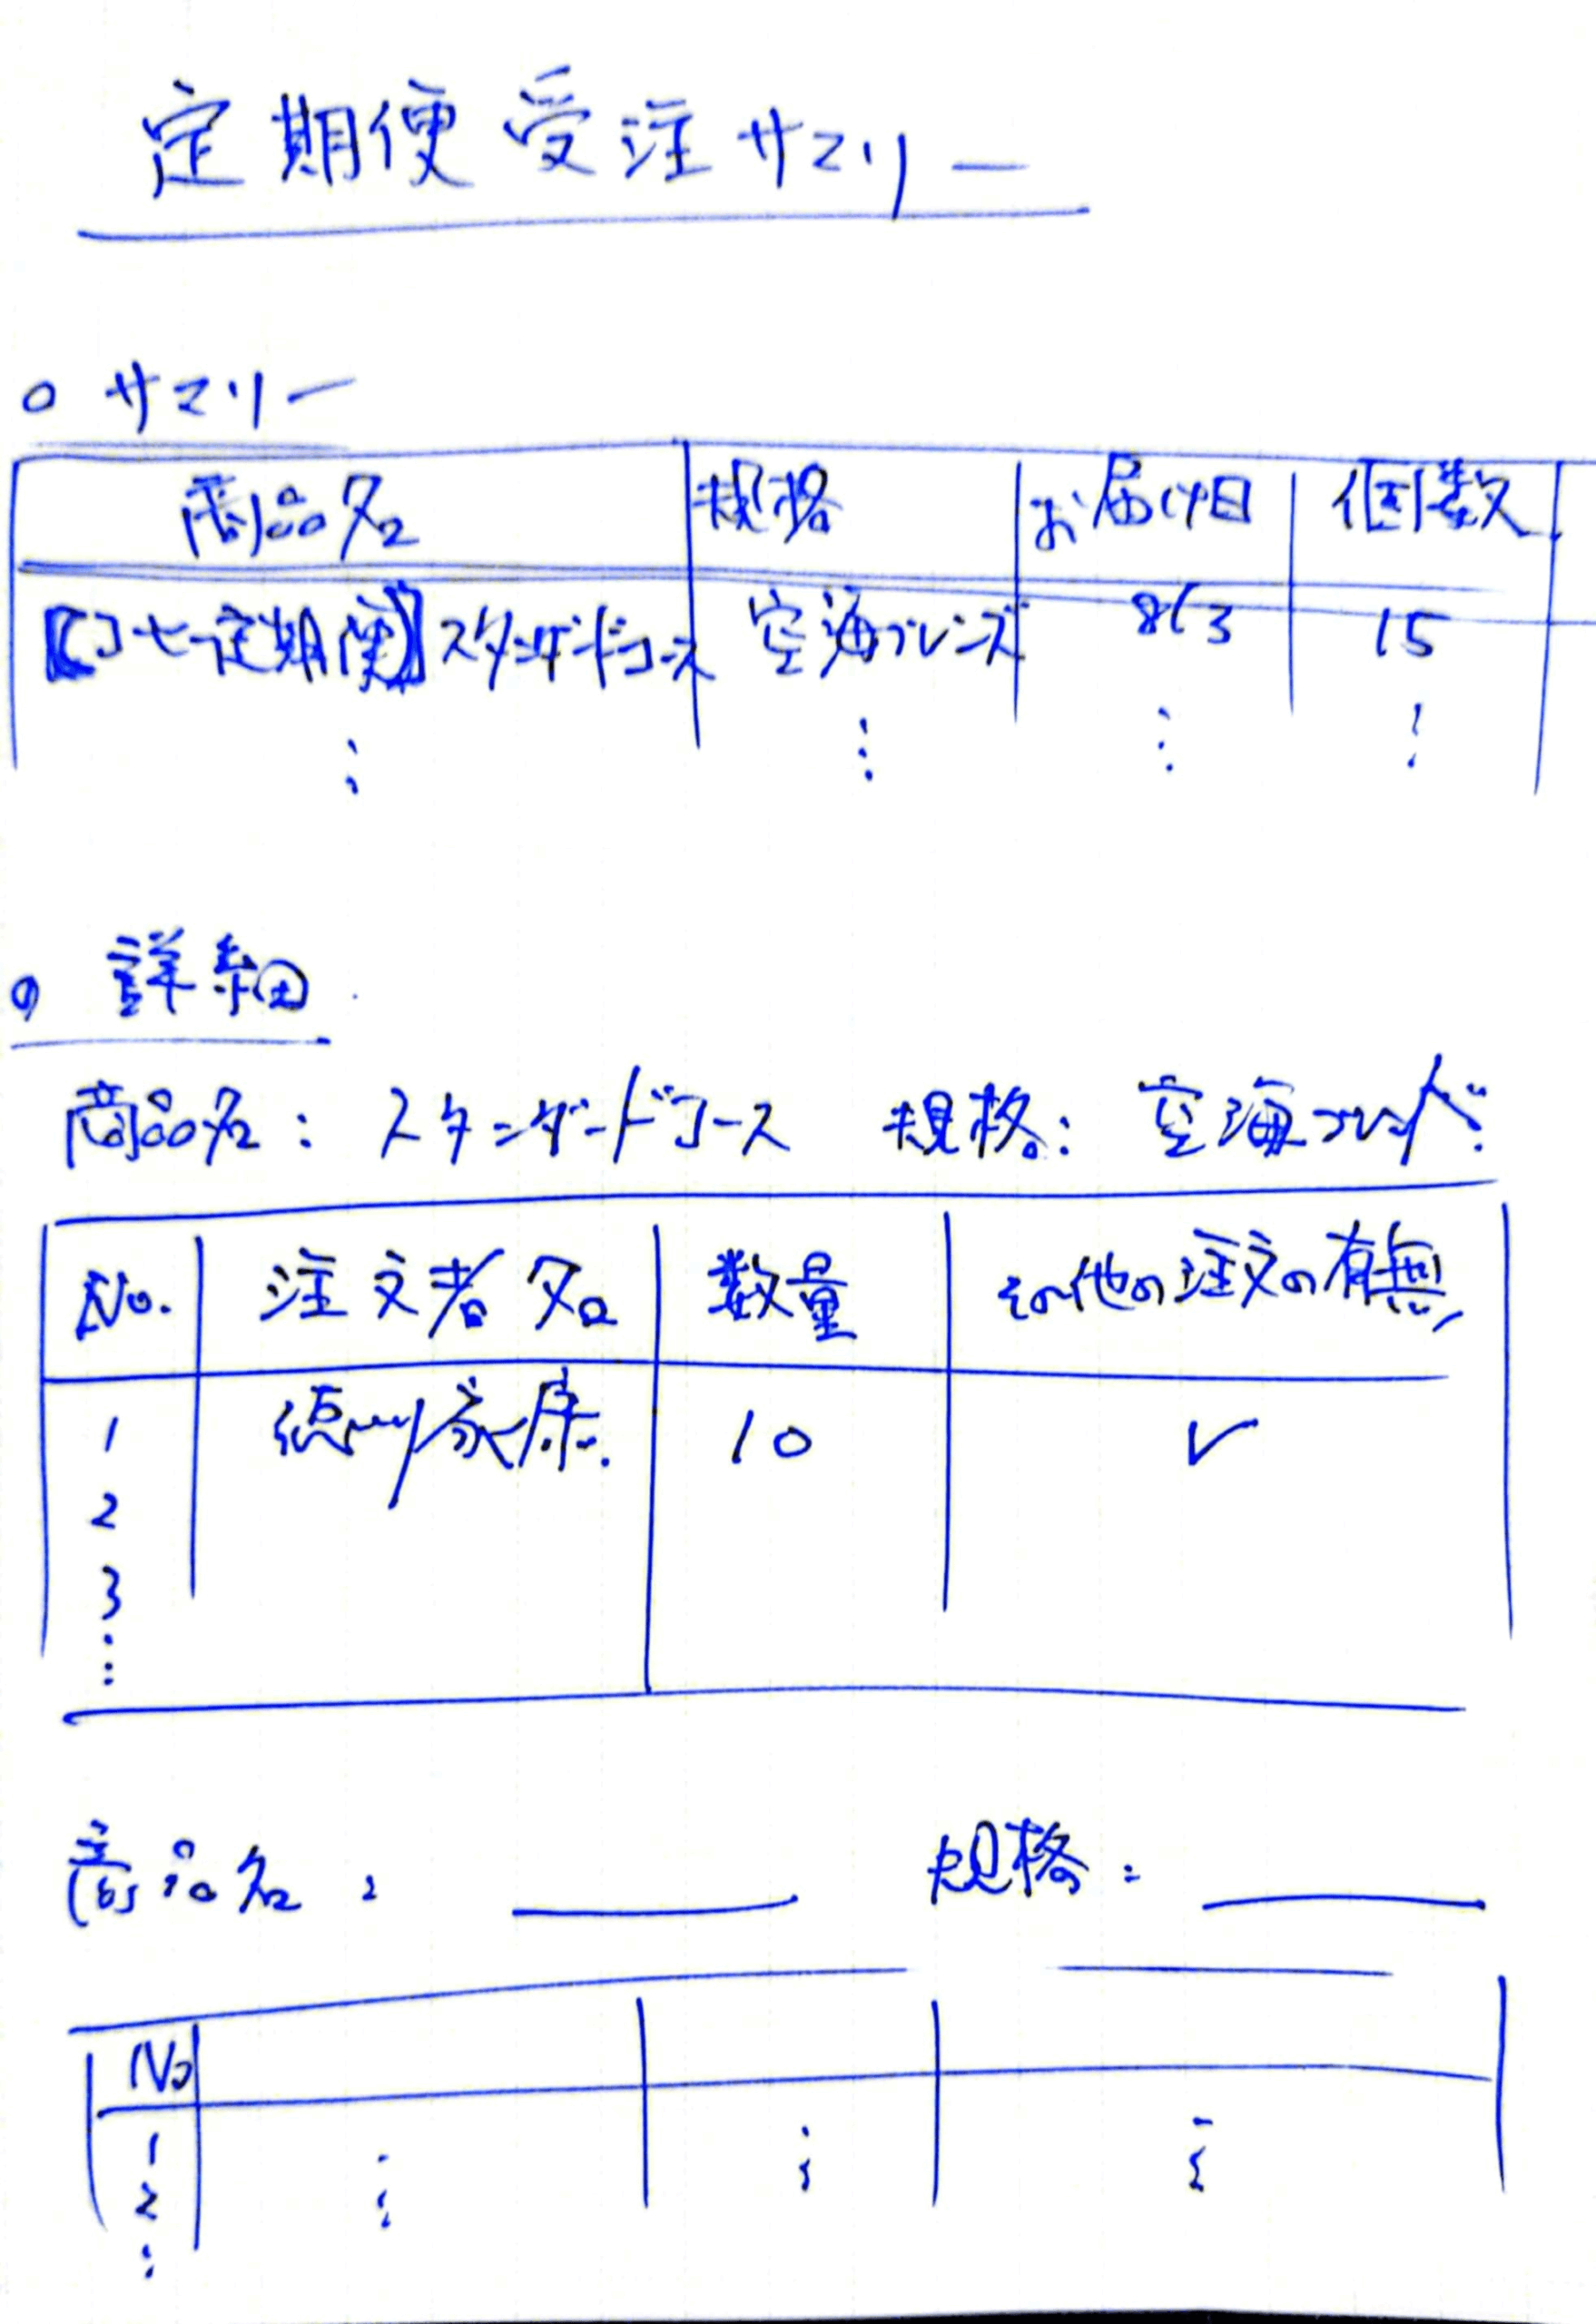 定期便受注サマリー
○ サマリー
商品名 規格 お届け日 個数
【ロモ定期便】スタンダードコース 空海ブレンズ 8/3 15
⋮ ⋮ ⋮ ⋮
○ 詳細
商品名: スタンダードコース 規格: 空海ブレンド
No. 注文者名 数量 その他の注文の有無
1 徳川家康 10 ✓
2
3
⋮
商品名: 規格:
No
1 ⋮ ⋮ ⋮
2
⋮